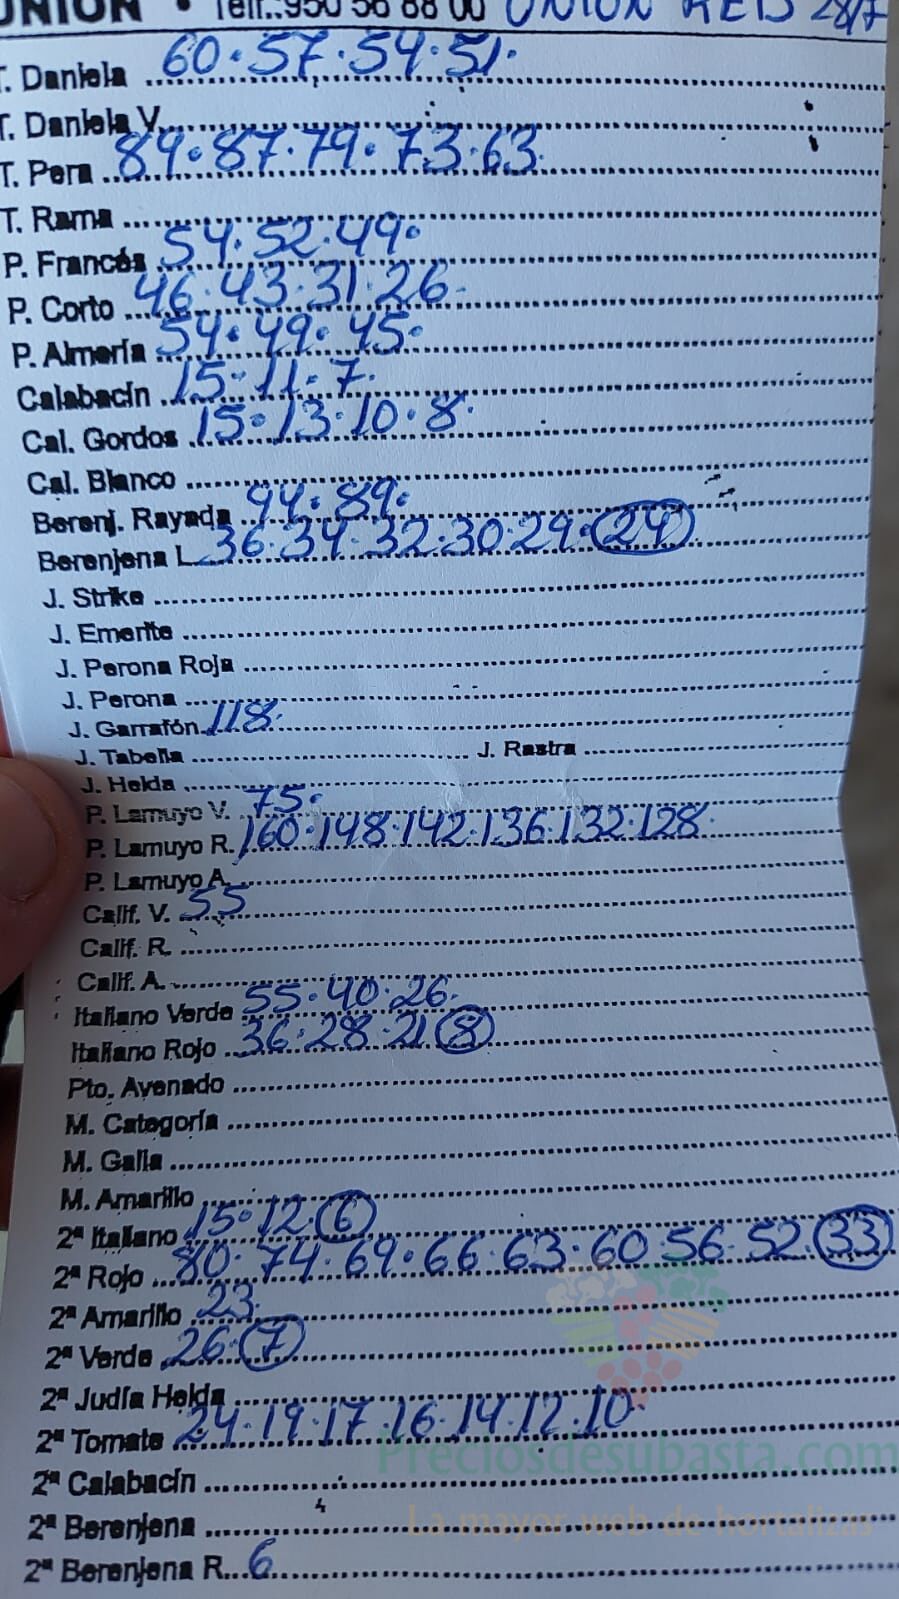 UNION • Telf.:950 56 88 00 UNION REDS 28/7
T. Daniela 60·57·54·51·
T. Daniela V.
T. Pera 89·87·79·73·63
T. Rama
P. Francés 54·52·49·
P. Corto 46·43·31·26·
P. Almería 54·49·45·
Calabacín 15·11·7·
Cal. Gordos 15·13·10·8·
Cal. Blanco
Berenj. Rayada 94·89·
Berenjena L 36·34·32·30·29·24
J. Strike
J. Emerite
J. Perona Roja
J. Perona
J. Garrafón 118·
J. Tabella J. Rastra
J. Helda
P. Lamuyo V. 75·
P. Lamuyo R. 160·148·142·136·132·128·
P. Lamuyo A.
Calif. V. 55
Calif. R.
Calif. A.
Italiano Verde 55·40·26·
Italiano Rojo 36·28·21 8
Pto. Avenado
M. Categoría
M. Galia
M. Amarillo
2ª Italiano 15·12 6
2ª Rojo 80·74·69·66·63·60·56·52·33
2ª Amarillo 23·
2ª Verde 26·7
2ª Judía Helda
2ª Tomate 24·19·17·16·14·12·10
Preciosdesubasta.com
2ª Calabacín
La mayor web de hortalizas
2ª Berenjena
2ª Berenjena R. 6